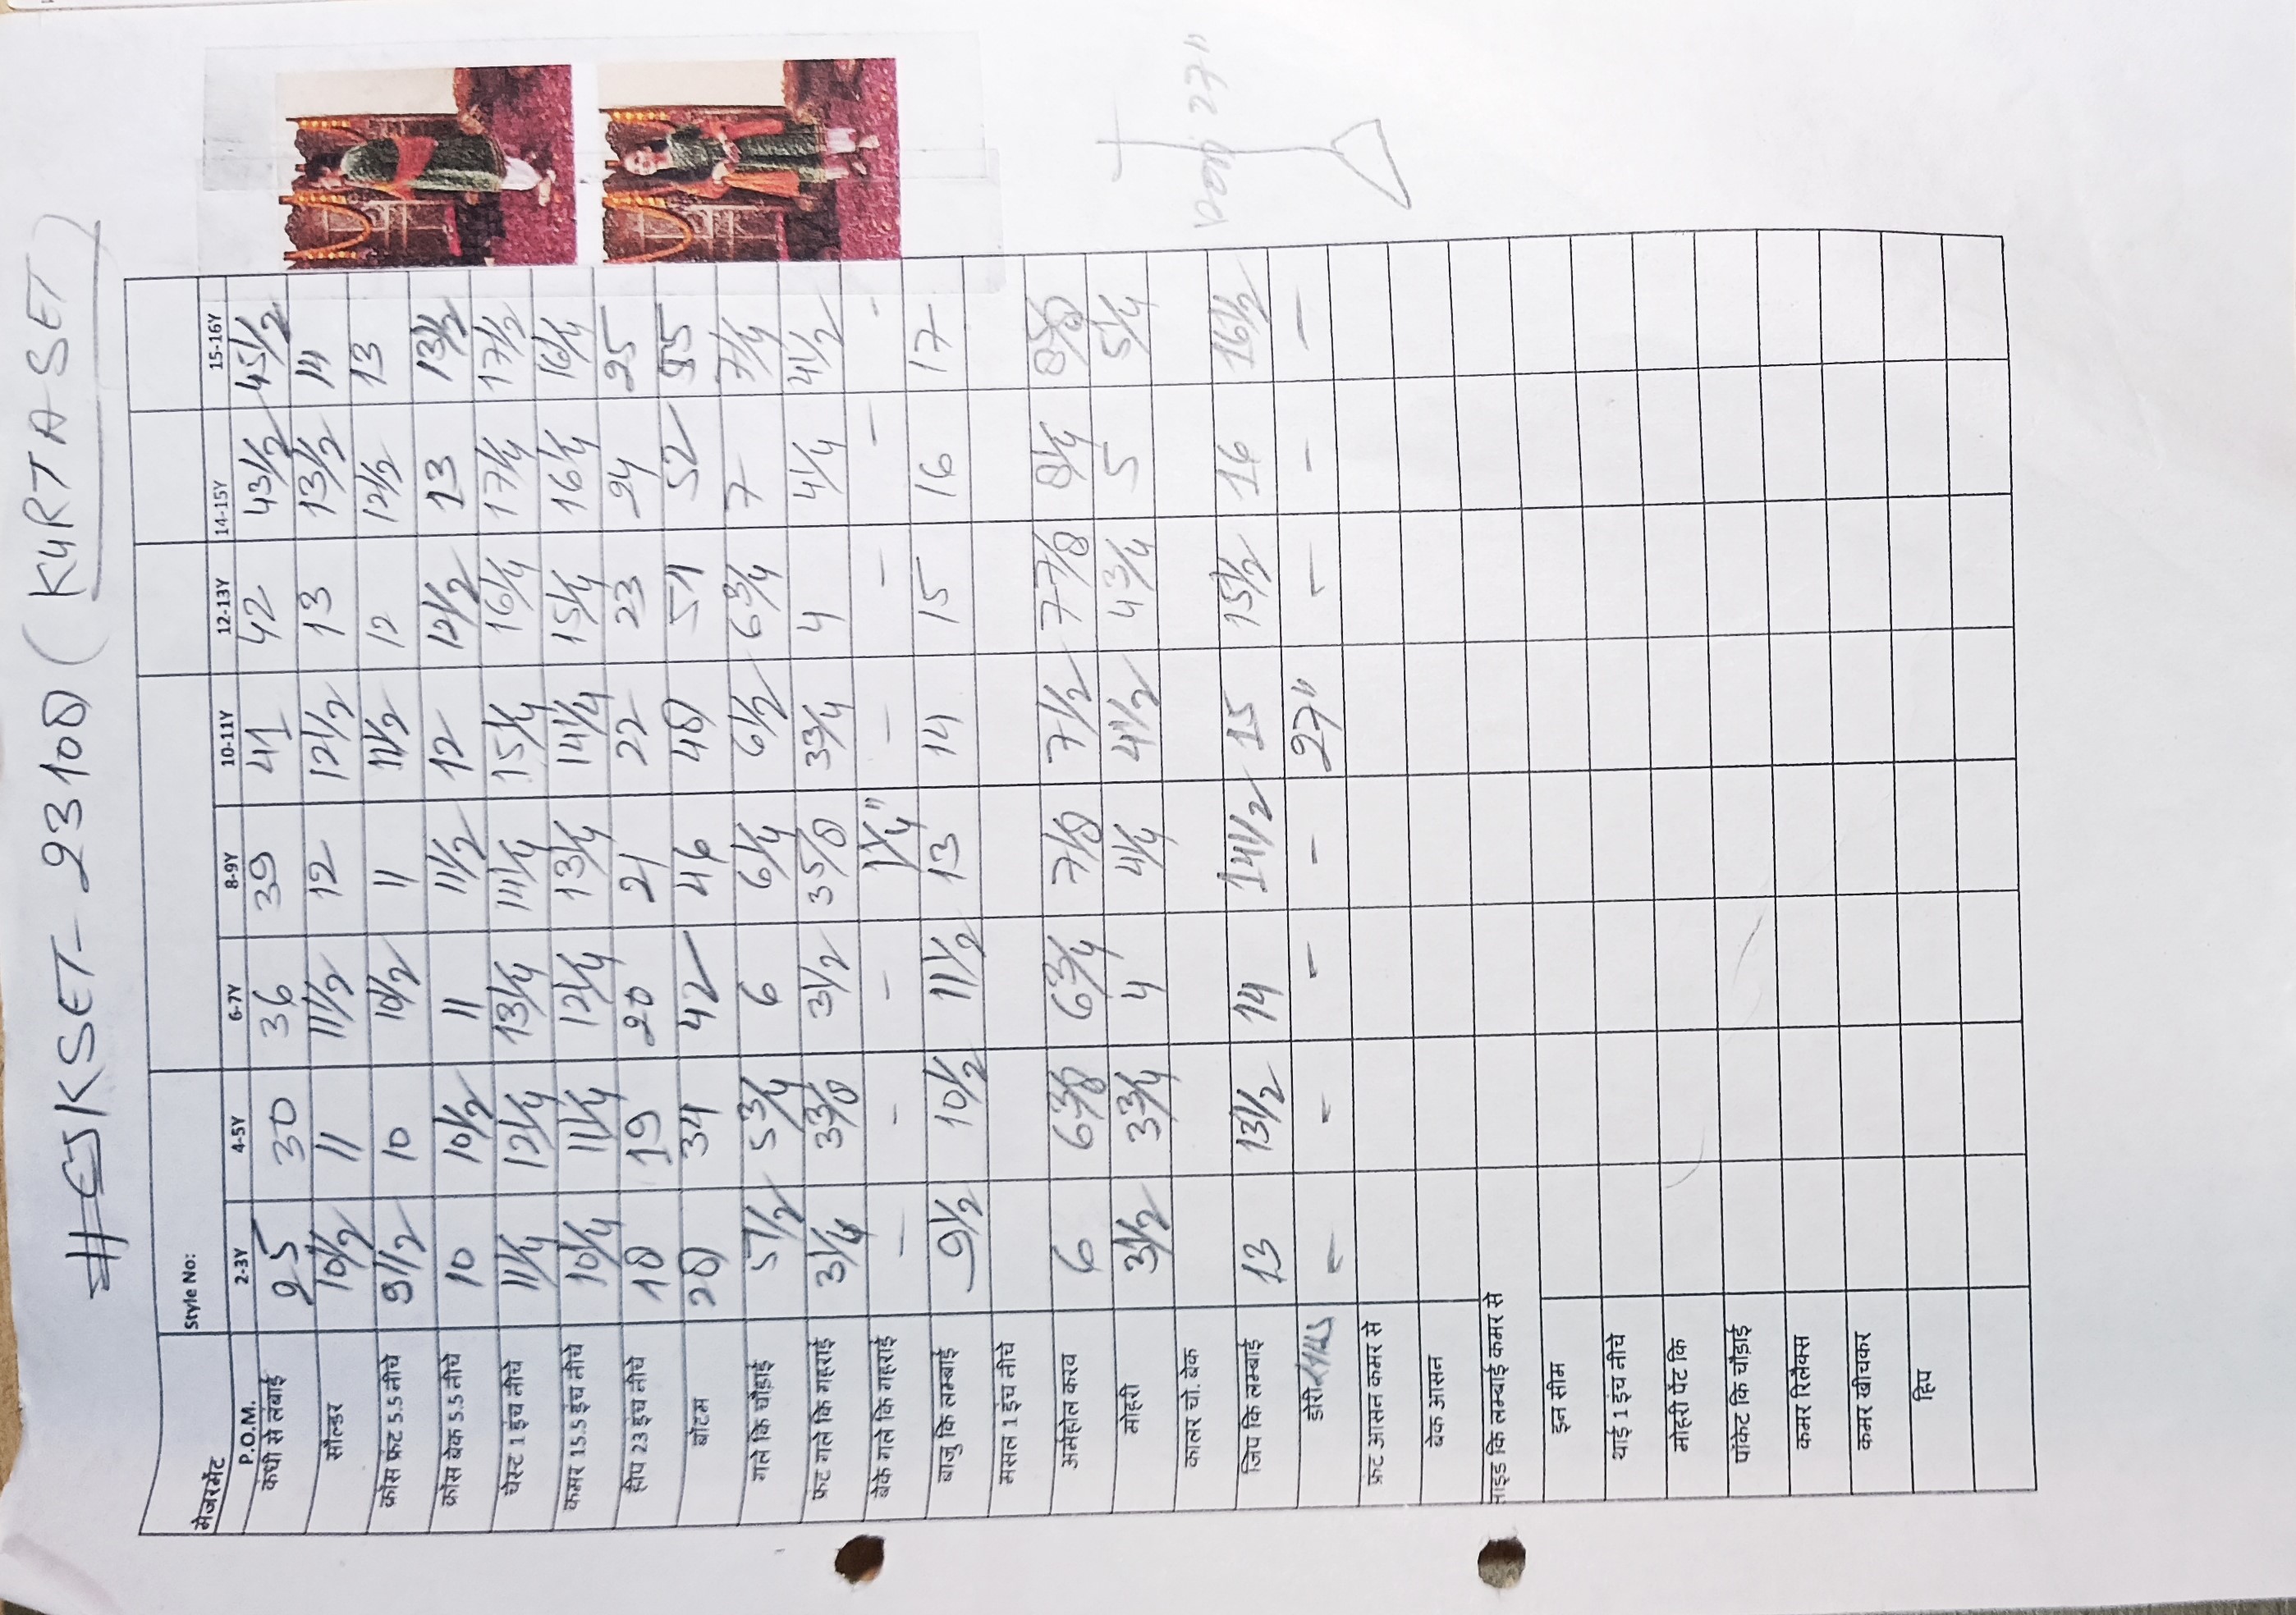 # EJKSET-23108 (KURTA SET)
Style No:
मेजरमेंट
P.O.M. 2-3Y 4-5Y 6-7Y 8-9Y 10-11Y 12-13Y 14-15Y 15-16Y
कंधी से लंबाई 25 30 36 39 41 42 43½ 45½
सौल्डर 10½ 11 11½ 12 12½ 13 13½ 14
क्रॉस फ्रंट 5.5 नीचे 9½ 10 10½ 11 11½ 12 12½ 13
क्रॉस बेक 5.5 नीचे 10 10½ 11 11½ 12 12½ 13 13½
चेस्ट 1 इंच नीचे 11¼ 12¼ 13¼ 14¼ 15¼ 16¼ 17¼ 17½
कमर 15.5 इंच नीचे 10¼ 11¼ 12¼ 13¼ 14¼ 15¼ 16¼ 16¼
हीप 23 इंच नीचे 18 19 20 21 22 23 24 25
बॉटम 28 34 42 46 48 51 52 55
गले कि चौड़ाई 5½ 5¾ 6 6¼ 6½ 6¾ 7 7¼
फ्रंट गले कि गहराई 3¼ 3⅜ 3½ 3⅝ 3¾ 4 4¼ 4½
बेके गले कि गहराई - - - 1¼" - - - -
बाजु कि लम्बाई 9½ 10½ 11½ 13 14 15 16 17
मसल 1 इंच नीचे
अर्महोल करव 6 6⅜ 6¾ 7⅛ 7½ 7⅞ 8¼ 8⅝
मोहरी 3½ 3¾ 4 4¼ 4½ 4¾ 5 5¼
कालर चो. बेक
जिप कि लम्बाई 13 13½ 14 14½ 15 15½ 16 16½
डोरी - - - - 27" - - -
फ्रंट आसन कमर से
बेक आसन
साइड कि लम्बाई कमर से
इन सीम
थाई 1 इंच नीचे
मोहरी पेंट कि
पॉकेट कि चौड़ाई
कमर रिलैक्स
कमर खीचकर
हिप
27"